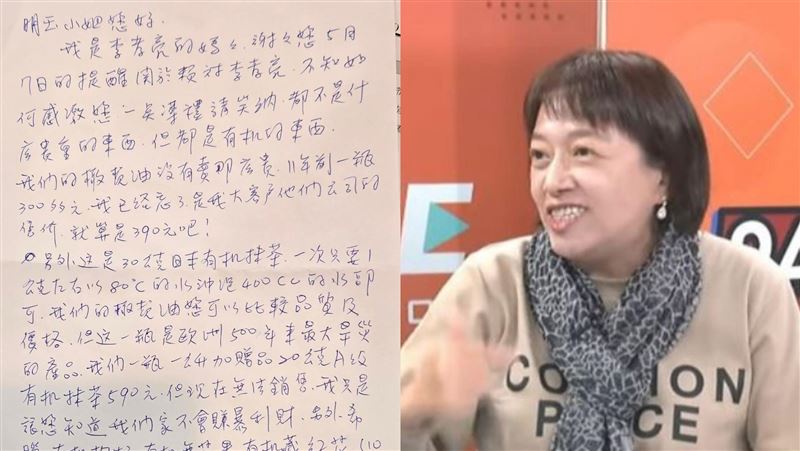 明玉小姐您好.
我是李孝亮的媽々, 謝々您5月
7日的提醒関於賴对李孝亮. 不知如
何感激您 一点薄禮請笑纳. 都不是什
庅貴重的東西. 但都是有机的東西.
我們的橄欖油没有賣那庅貴. 11年前一瓶
300多元. 我已经忘了是我大客户他們公司的
售价. 就算是390元吧!
另外這是30克日本有机抹茶. 一次只要1
克左右以80℃的水沖泡400CC的水即
可. 我們的橄欖油您可以比較品質及
價格. 但这一瓶是歐洲500年來最大旱災
的產品. 我們一瓶一公升加贈品20克A級
有机抹茶590元. 但现在無法銷售. 我只是
讓您知道我們家不會賺暴利財. 另外. 希
有机藏红花 (10
CO ION
PE CE
E